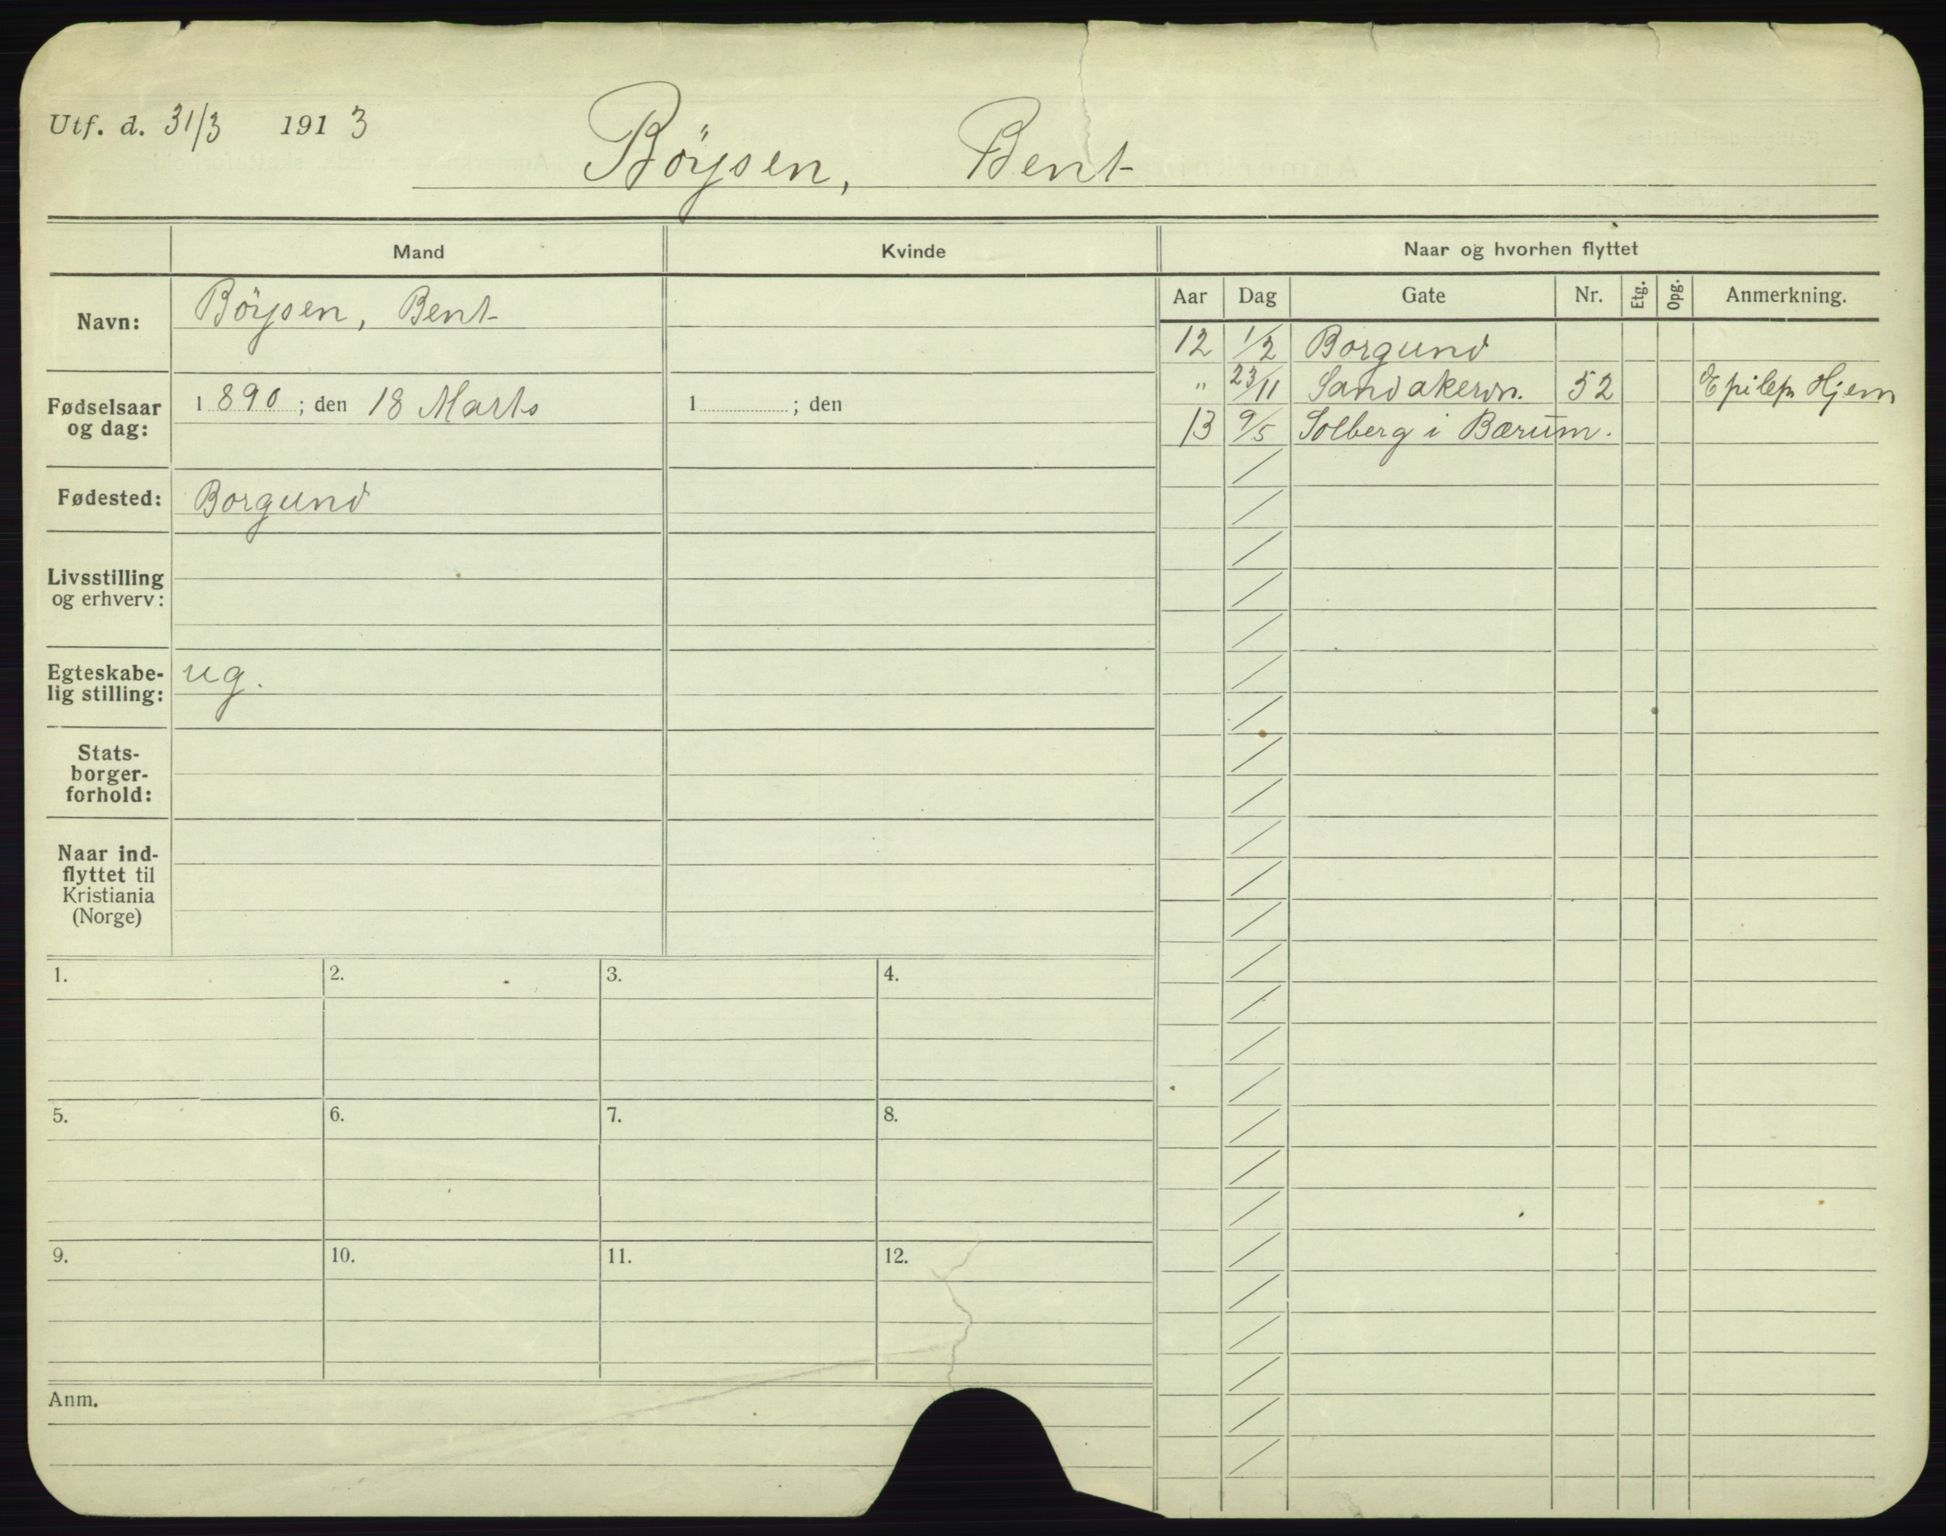 Utf. d. 31/3 1913
Böysen, Bent
Mand Kvinde Naar og hvorhen flyttet
Navn: Böysen, Bent
Aar Dag Gate Nr. Etg. Opg. Anmerkning.
12 1/2 Borgund
" 23/11 Sandakervn. 52 Epilep. Hjem
13 9/5 Solberg i Bærum.
Fødselsaar
og dag: 1890; den 18 Marts 1 ; den
Fødested: Borgund
Livsstilling
og erhverv:
Egteskabe-
lig stilling: ug.
Stats-
borger-
forhold:
Naar ind-
flyttet til
Kristiania
(Norge)
1. 2. 3. 4.
5. 6. 7. 8.
9. 10. 11. 12.
Anm.